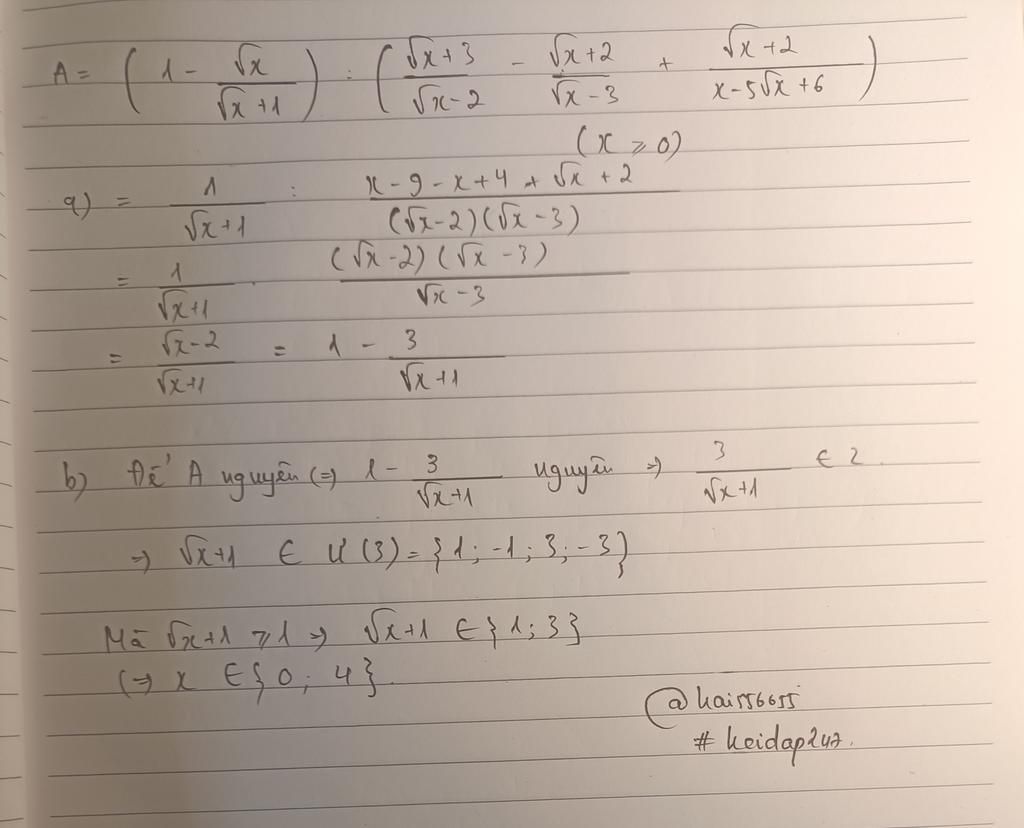 A = ( 1 - √x/(√x+1) ) : ( (√x+3)/(√x-2) - (√x+2)/(√x-3) + (√x+2)/(x-5√x+6) )
(x ⩾ 0)
a) = 1/(√x+1) : (x-9-x+4+√x+2)/((√x-2)(√x-3))
= 1/(√x+1) . ((√x-2)(√x-3))/(√x-3)
= (√x-2)/(√x+1) = 1 - 3/(√x+1)
b) Để A nguyên (=) 1 - 3/(√x+1) nguyên => 3/(√x+1) ∈ Z.
=> √x+1 ∈ Ư(3) = {1; -1; 3; -3}
Mà √x+1 ⩾ 1 => √x+1 ∈ {1; 3}
(=> x ∈ {0; 4}.
@hai556655
# hoidap247.